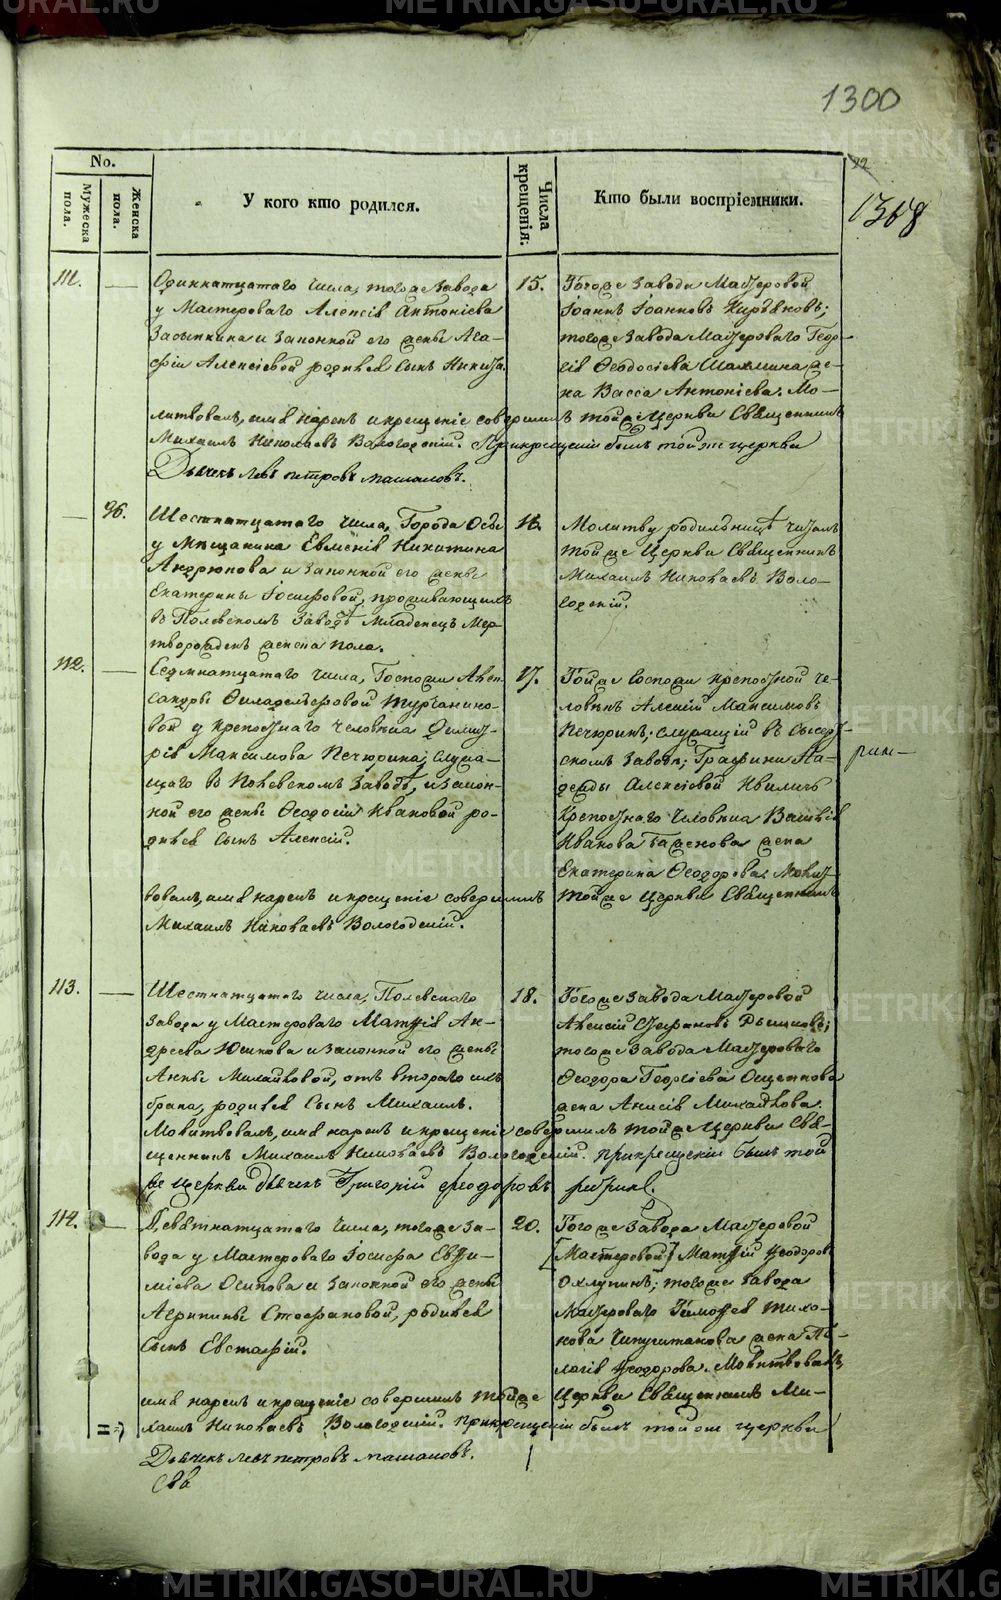 1300
22
1368
No.
Мужеска пола.
Женска пола.
У кого кто родился.
Числа крещенія.
Кто были воспріемники.
111. — Одиннатцатаго числа, тогоже завода
у Мастероваго Алексія Антоніева
Засыпкина и законной его жены Ага-
фіи Алексіевой родился сынъ Никита.
15. Тогоже завода Мастеровой
Іоаннъ Іоанновъ
тогоже завода Мастероваго Геор-
гія Ѳеодосіева же-
на Васса Антоніева. Мо-
литвовалъ, имя нарекъ и крещеніе совершилъ тойже Церкви Священникъ
Михаилъ Николаевъ Вологодскій. При крещеніи былъ той же церкви
Дьячекъ Левъ Петровъ
— 96. Шестнатцатаго числа, Города Осы
у Мѣщанина Евгенія Никитина
Андрюкова и законной его жены
Екатерины Іосифовой, проживающихъ
въ Полевскомъ заводѣ Младенецъ Мер-
творожденъ женска пола.
16. Молитву родильницѣ читалъ
тойже Церкви Священникъ
Михаилъ Николаевъ Воло-
годскій.
112. — Седмнатцатаго числа, Госпожи Алек-
сандры Филадельфовой Турчанино-
вой у крепостнаго человѣка Димит-
рія Максимова Печюрина, служа-
щаго въ Полевскомъ заводѣ, и закон-
ной его жены Ѳеодосіи Ивановой ро-
дился сынъ Алексій.
17. Тойже Госпожи крепостной че-
ловѣкъ Алексій Максимовъ
Печюринъ, служащій въ Сысерт-
скомъ заводѣ; Графини На-
дежды Алексіевой
крепостнаго человѣка Василія
Иванова Баженова жена
Екатерина Ѳеодорова. Молит-
вовалъ, имя нарекъ и крещеніе совершилъ тойже Церкви Священникъ
Михаилъ Николаевъ Вологодскій.
113. — Шестнатцатаго числа, Полевскаго
завода у Мастероваго Матѳія Ан-
дреева Юшкова и законной его жены
Анны Михайловой, отъ втораго ихъ
брака, родился сынъ Михаилъ.
18. Тогоже завода Мастеровой
Алексій Стефановъ
тогоже завода Мастероваго
Ѳеодора Георгіева Ощепкова
жена Анисія Михайлова.
Молитвовалъ, имя нарекъ и крещеніе совершилъ тойже Церкви Свя-
щенникъ Михаилъ Николаевъ Вологодскій. При крещеніи былъ той
же церкви дьячекъ Григорій Феодоровъ
114. — Девятнатцатаго числа, тогоже за-
вода у Мастероваго Іосифа Евѳи-
міева Осипова и законной его жены
Агрипины Стефановой, родился
сынъ Евстафій.
20. Тогоже завода Мастеровой
[Мастеровой] Матѳій Ѳеодоров
Охлупинъ; тогоже завода
Мастероваго Тимоѳея Тихо-
нова жена Пе-
лагія Ѳеодорова. Молитвовалъ,
имя нарекъ и крещеніе совершилъ тойже Церкви Священникъ Ми-
хаилъ Николаевъ Вологодскій. При крещеніи былъ той же церкви
Дьячекъ Левъ Петровъ
METRIKI.GASO-URAL.RU